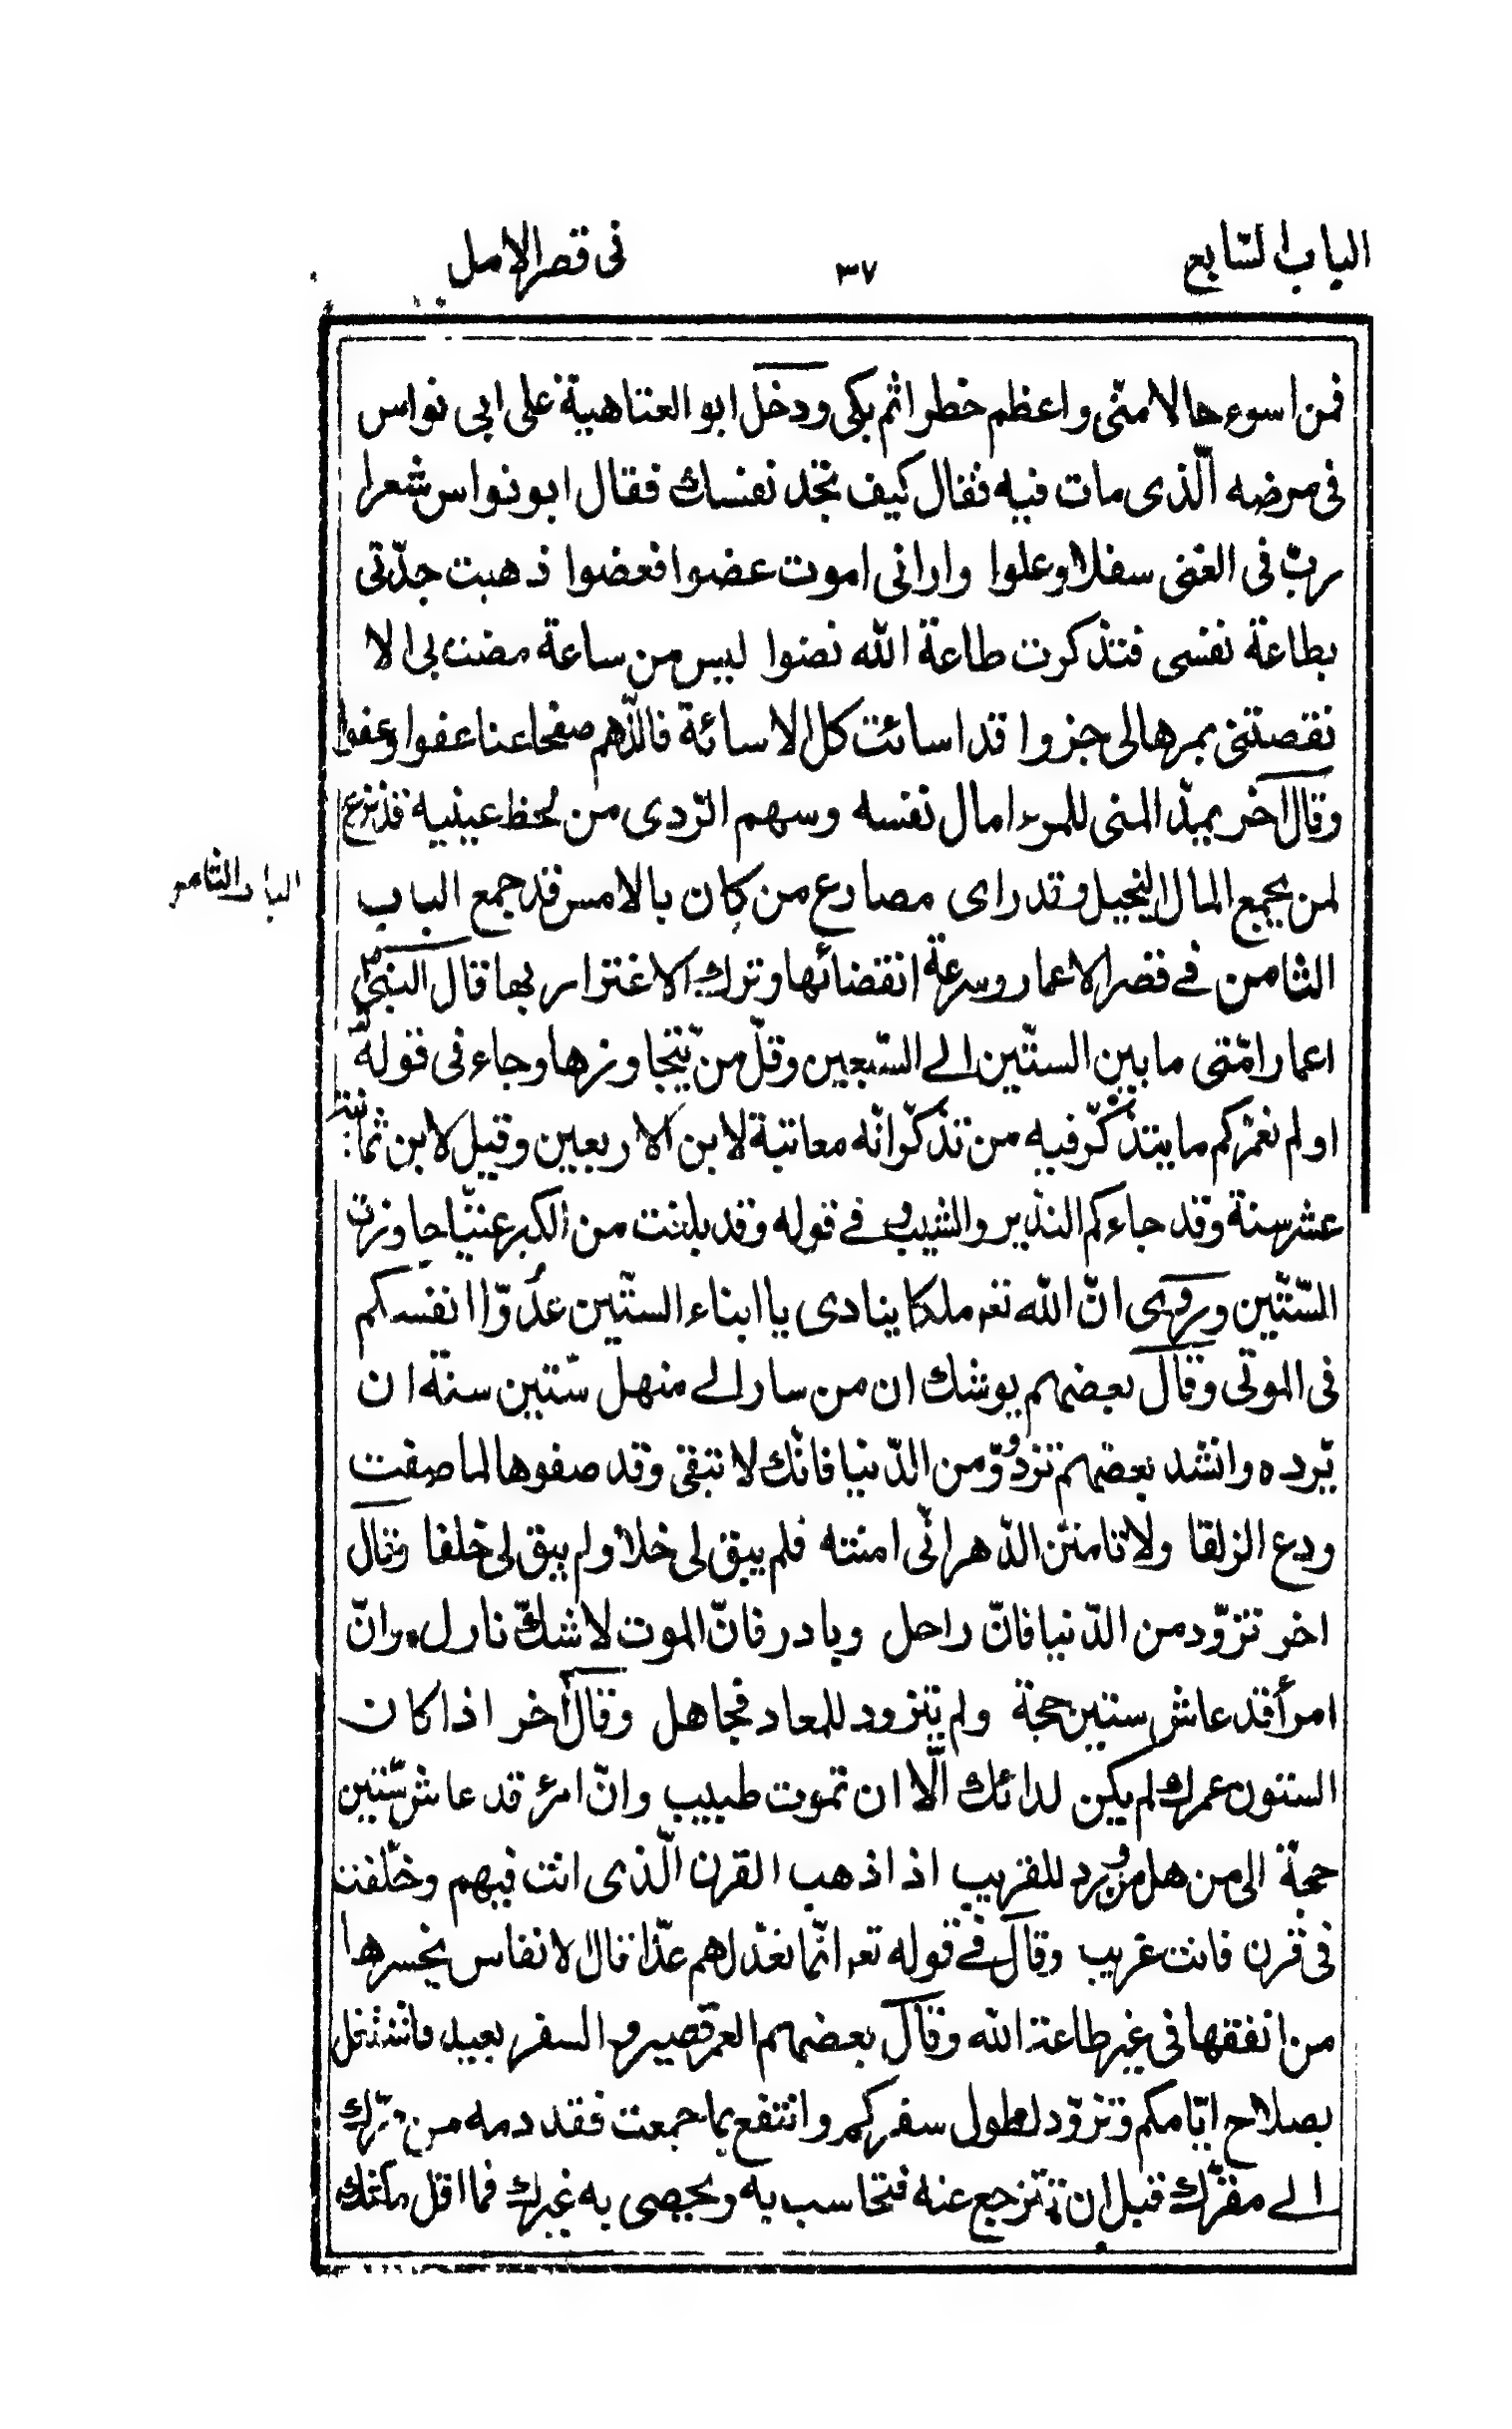 الباب السّابع ٣٧ فى قصر الامل
فمن اسوء حالا منّى واعظم خطرا ثم بكى ودخل ابو العتاهية على ابى نواس
فى مرضه الّذى مات فيه فقال كيف تجد نفسك فقال ابو نواس شعرا
ربّ فى الغنى سفلا وعلوا وارانى اموت عضوا فعضوا ذهبت جدّتى
بطاعة نفسى فتذكرت طاعة الله نضوا ليس من ساعة مضت بى الا
نقصتنى بمرها لى جزوا قد اسائت كل الاسائة فاللّهم صفحا عنا عفوا وعفوا
وقال آخر يميدّ المنى للمرء امال نفسه وسهم الرّدى من لحظ عينيه قد نزع
لمن يجمع المال البخيل وقد راى مصارع من كان بالامس قد جمع الباب
الباب الثامن
الثامن فے قصر الاعمار وسرعة انقضائها وترك الاغترار بها قال النبىّ
اعمار امّتى ما بين السّتّين الے السّبعين وقلّ من يّتجاوزها وجاء فى قوله
او لم نعمّركم ما يتذكّر فيه من تذكّر انّه معاتبة لابن الاربعين وقيل لابن ثمانية
عشر سنة وقد جاءكم النذير والشيب فے قوله وقد بلغت من الكبر عتيّا جاوزت
السّتّين وروى انّ الله تعه ملكا ينادى يا ابناء الستّين عدّوّا انفسكم
فى الموتى وقال بعضهم يوشك ان من سار الے منهل ستّين سنة ان
يّرده وانشد بعضهم تزوّد من الدّنيا فانّك لا تبقى وقد صفوها لما صفت
ودع الزلقا ولا تامننّ الدّهر انّى امنته فلم يبق لى خلا ولم يبق لى خلفا وقال
اخر تزوّد من الدّنيا فانّ راحل وبادر فانّ الموت لا شكّ نازل وانّ
امرأ قد عاش ستين حجة ولم يتزود للمعاد فجاهل وقال آخر اذا كان
الستون عمرك لم يكن لدائك الّا ان تموت طبيب وانّ امرء قد عاش ستّين
حجة الى من هل من ورد للقريب اذا ذهب القرن الّذى انت فيهم وخلّفت
فى قرن فانت غريب وقال فے قوله تعه انّما نعدّ لهم عدّا قال الانفاس يخسرها
من انفقها فى غير طاعة الله وقال بعضهم العمر قصير والسفر بعيد فاشتغل
بصلاح ايّامكم وتزوّد لطول سفركم وانتفع بما جمعت فقدمه من ممرّك
الے مقرّك قبل ان تزعج عنه فتحاسب به ويحصى به غيرك فما اقل مكثك